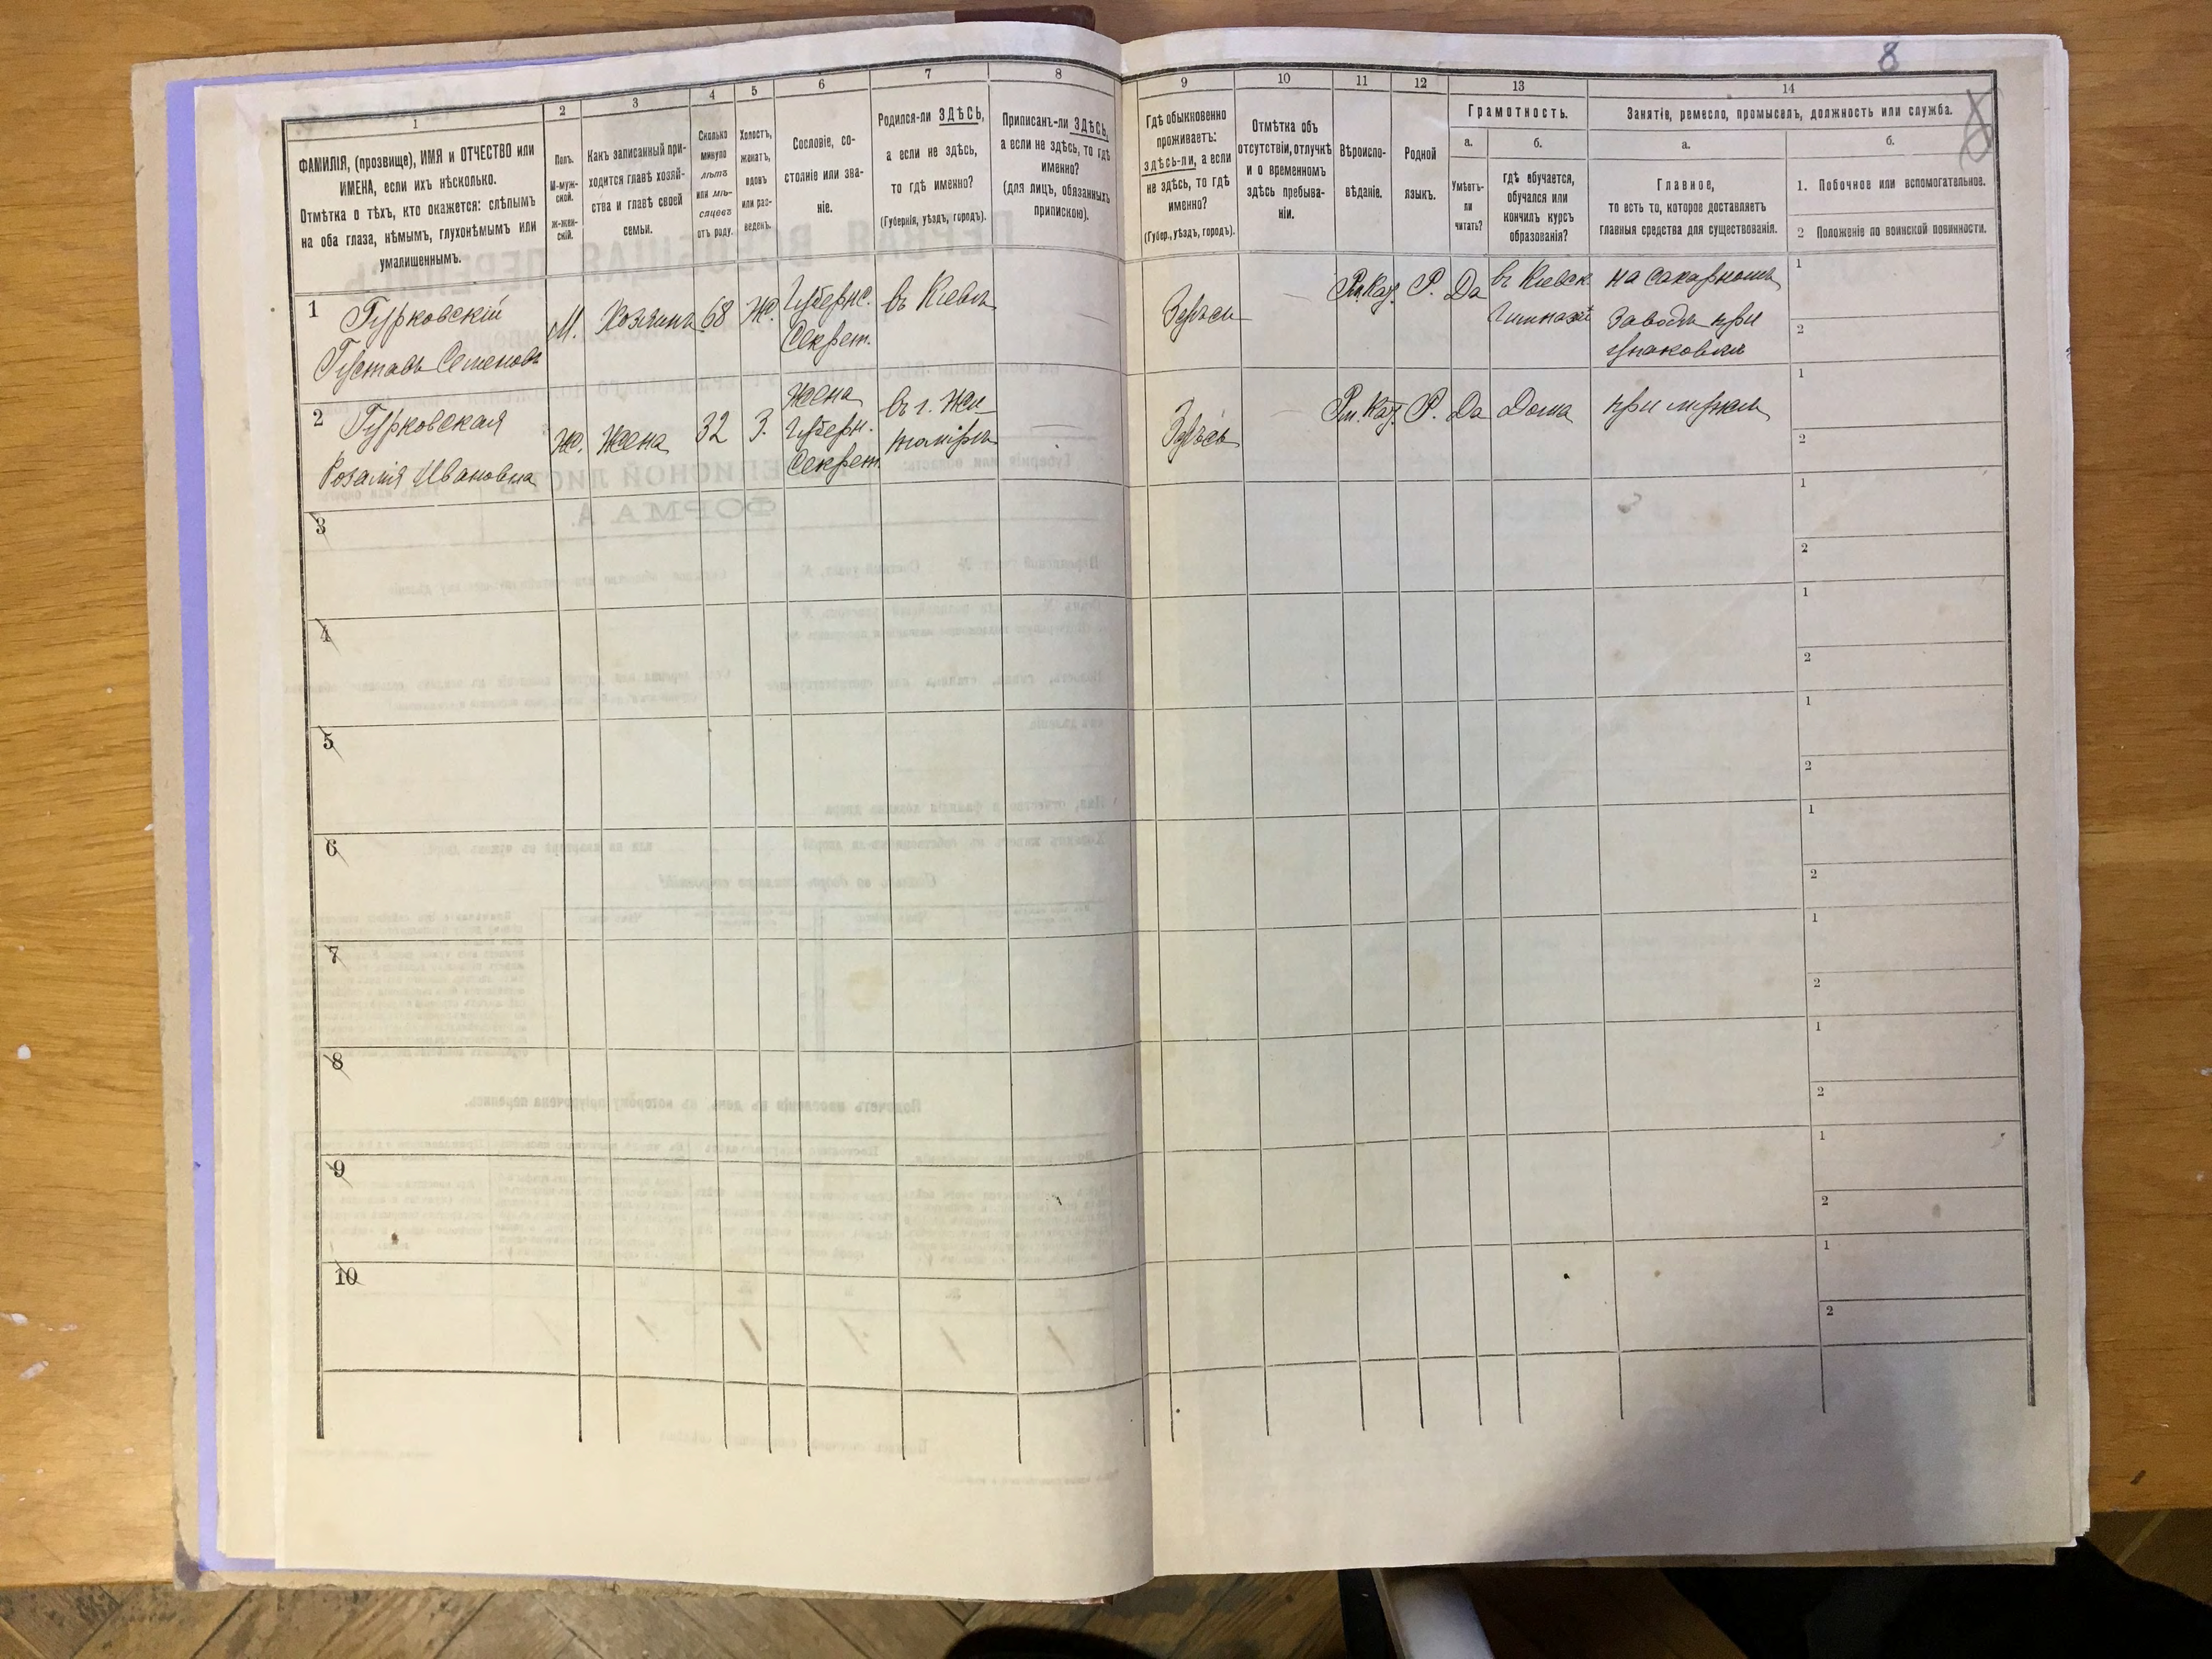 8
1
2
3
4
5
6
7
8
9
10
11
12
13
14
ФАМИЛІЯ, (прозвище), ИМЯ и ОТЧЕСТВО или
ИМЕНА, если ихъ нѣсколько.
Отмѣтка о тѣхъ, кто окажется: слѣпымъ
на оба глаза, нѣмымъ, глухонѣмымъ или
умалишеннымъ.
Полъ.
М-муж-
ской.
Ж-жен-
скій.
Какъ записанный при-
ходится главѣ хозяй-
ства и главѣ своей
семьи.
Сколько
минуло
лѣтъ
или мѣ-
сяцевъ
отъ роду.
Холостъ,
женатъ,
вдовъ
или раз-
веденъ.
Сословіе, со-
стояніе или зва-
ніе.
Родился-ли ЗДѢСЬ,
а если не здѣсь,
то гдѣ именно?
(Губернія, уѣздъ, городъ).
Приписанъ-ли ЗДѢСЬ,
а если не здѣсь, то гдѣ
именно?
(для лицъ, обязанныхъ
припискою).
Гдѣ обыкновенно
проживаетъ:
здѣсь-ли, а если
не здѣсь, то гдѣ
именно?
(Губер., уѣздъ, городъ).
Отмѣтка объ
отсутствіи, отлучкѣ
и о временномъ
здѣсь пребыва-
ніи.
Вѣроиспо-
вѣданіе.
Родной
языкъ.
Грамотность.
а.
Умѣетъ-
ли
читать?
б.
гдѣ обучается,
обучался или
кончилъ курсъ
образованія?
Занятіе, ремесло, промыселъ, должность или служба.
а.
Главное,
то есть то, которое доставляетъ
главныя средства для существованія.
б.
1. Побочное или вспомогательное.
2 Положеніе по воинской повинности.
1
Гурковскій
Густавъ Семеновъ
М.
Хозяинъ
68
Ж.
Губернс.
Секрет.
въ Кіевѣ
Здѣсь
Рм. Кат.
Р.
Да
въ Кіевск.
Гимназіи
на сахарномъ
заводѣ при
упаковкѣ
1
2
2
Гурковская
Розалія Ивановна
Ж.
Жена
32
З.
Жена
Губерн.
Секрет.
въ г. Жи
томірѣ
Здѣсь
Рм. Кат.
Р.
Да
Дома
при мужѣ
1
2
3
1
2
4
1
2
5
1
2
6
1
2
7
1
2
8
1
2
9
1
2
10
1
2